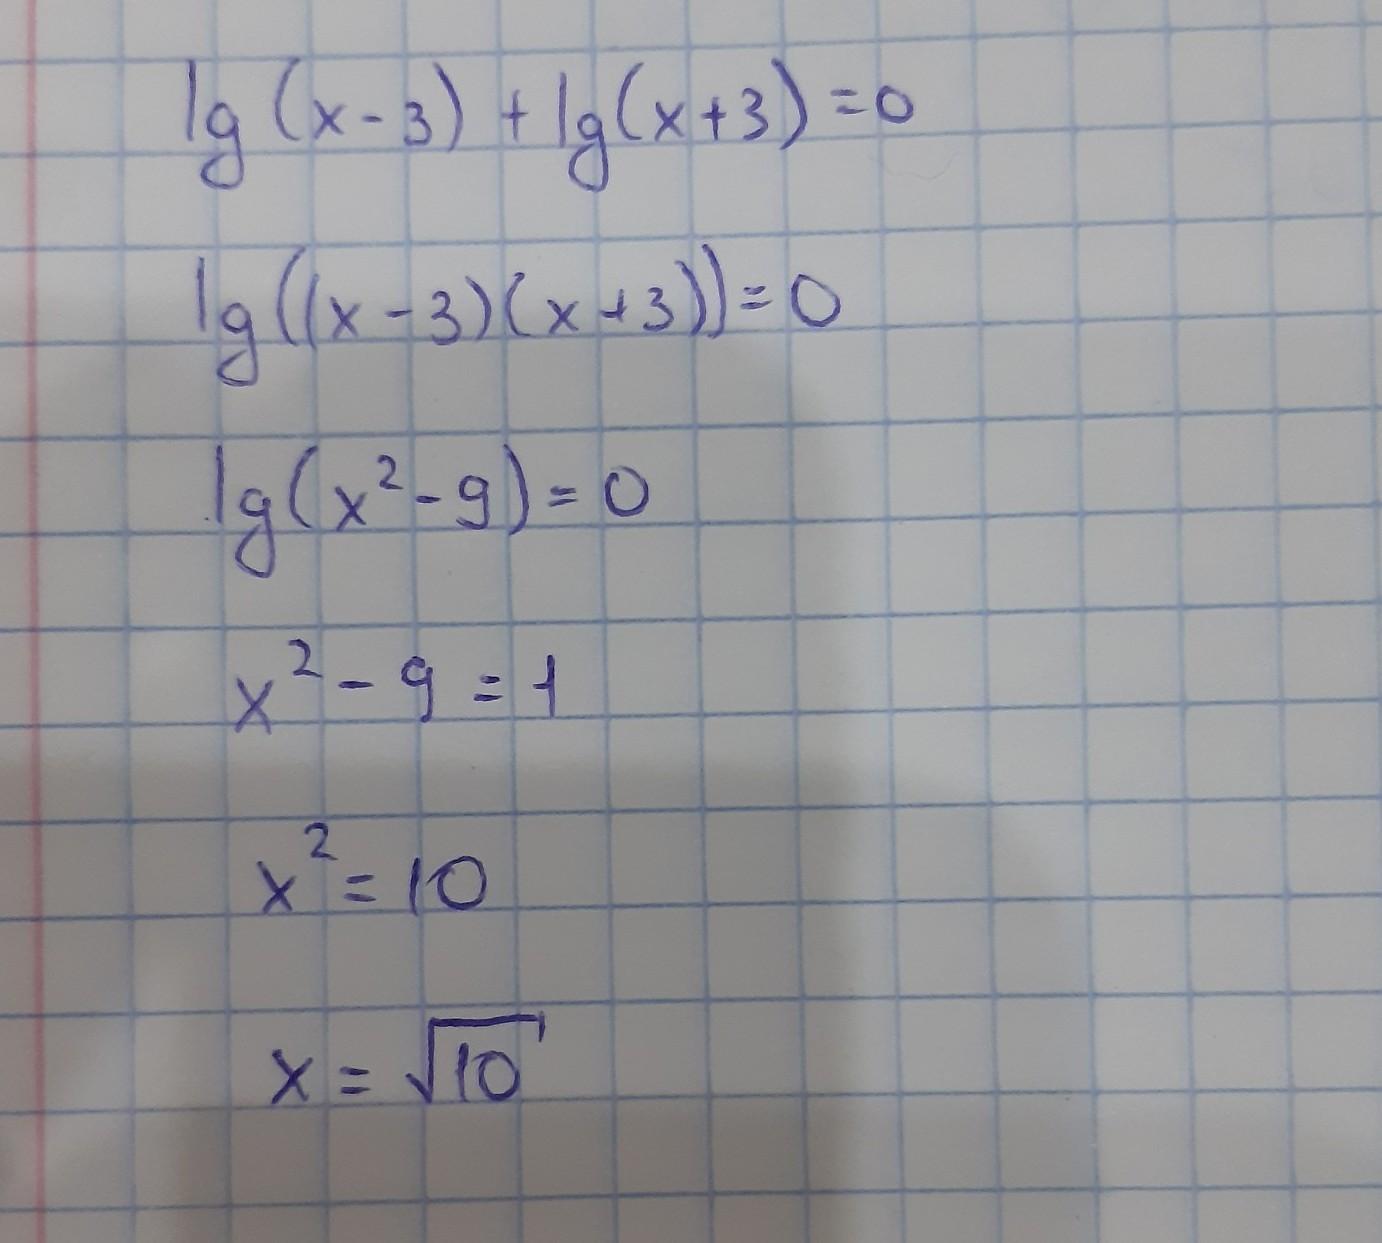 lg(x-3)+lg(x+3)=0
lg((x-3)(x+3))=0
lg(x²-9)=0
x²-9=1
x²=10
x=√10